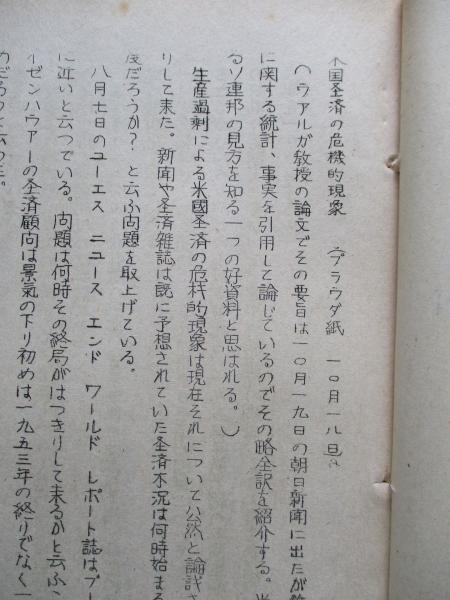 米国圣済の危機的現象　（プラウダ紙　一〇月一八日
（ヴアルガ教授の論文でその要旨は一〇月一九日の朝日新聞に出たが
に関する統計、事実を引用して論じているのでその略全訳を紹介する。米
るソ連邦の見方を知る一つの好資料と思はれる。）
生産過剰による米國圣済の危机的現象は現在それについて公然と論議さ
りして来た。新聞や圣済雑誌は既に予想されていた圣済不況は何時始まる
度だろうか？と云ふ問題を取上げている。
八月七日のユーエス　ニュース　エンド　ワールド　レポート誌はブー
に近いと云つている。問題は何時その終局がはつきりして来るかと云ふ
イゼンハウアーの圣済顧問は景気の下り初めは一九五三年の終りでなく一
めだろうと云つた。